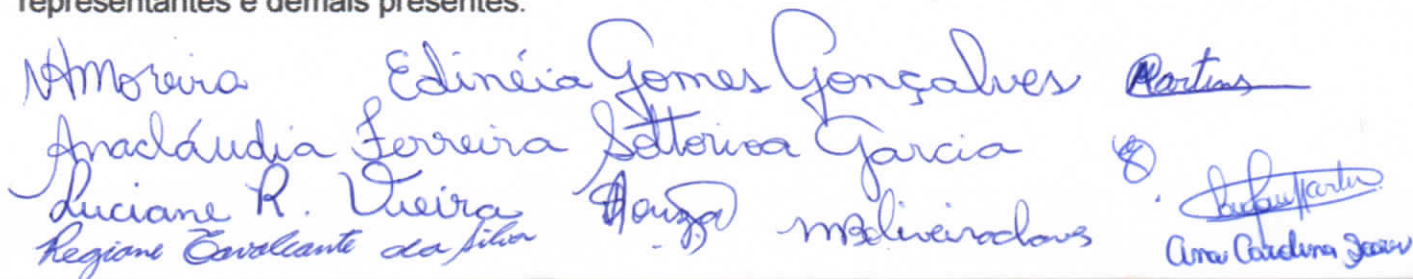 representantes e demais presentes.
Moreira Edinéia Gomes Gonçalves Martins
Anacláudia Ferreira Garcia
Luciane R. Vieira Souza
Regiane Cavalcante da Silva Ana Carolina